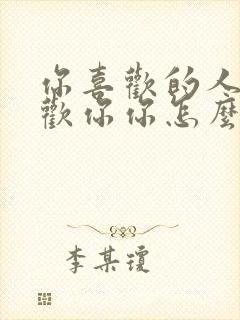 你喜歡的人
歡你你怎麼
李某瓊